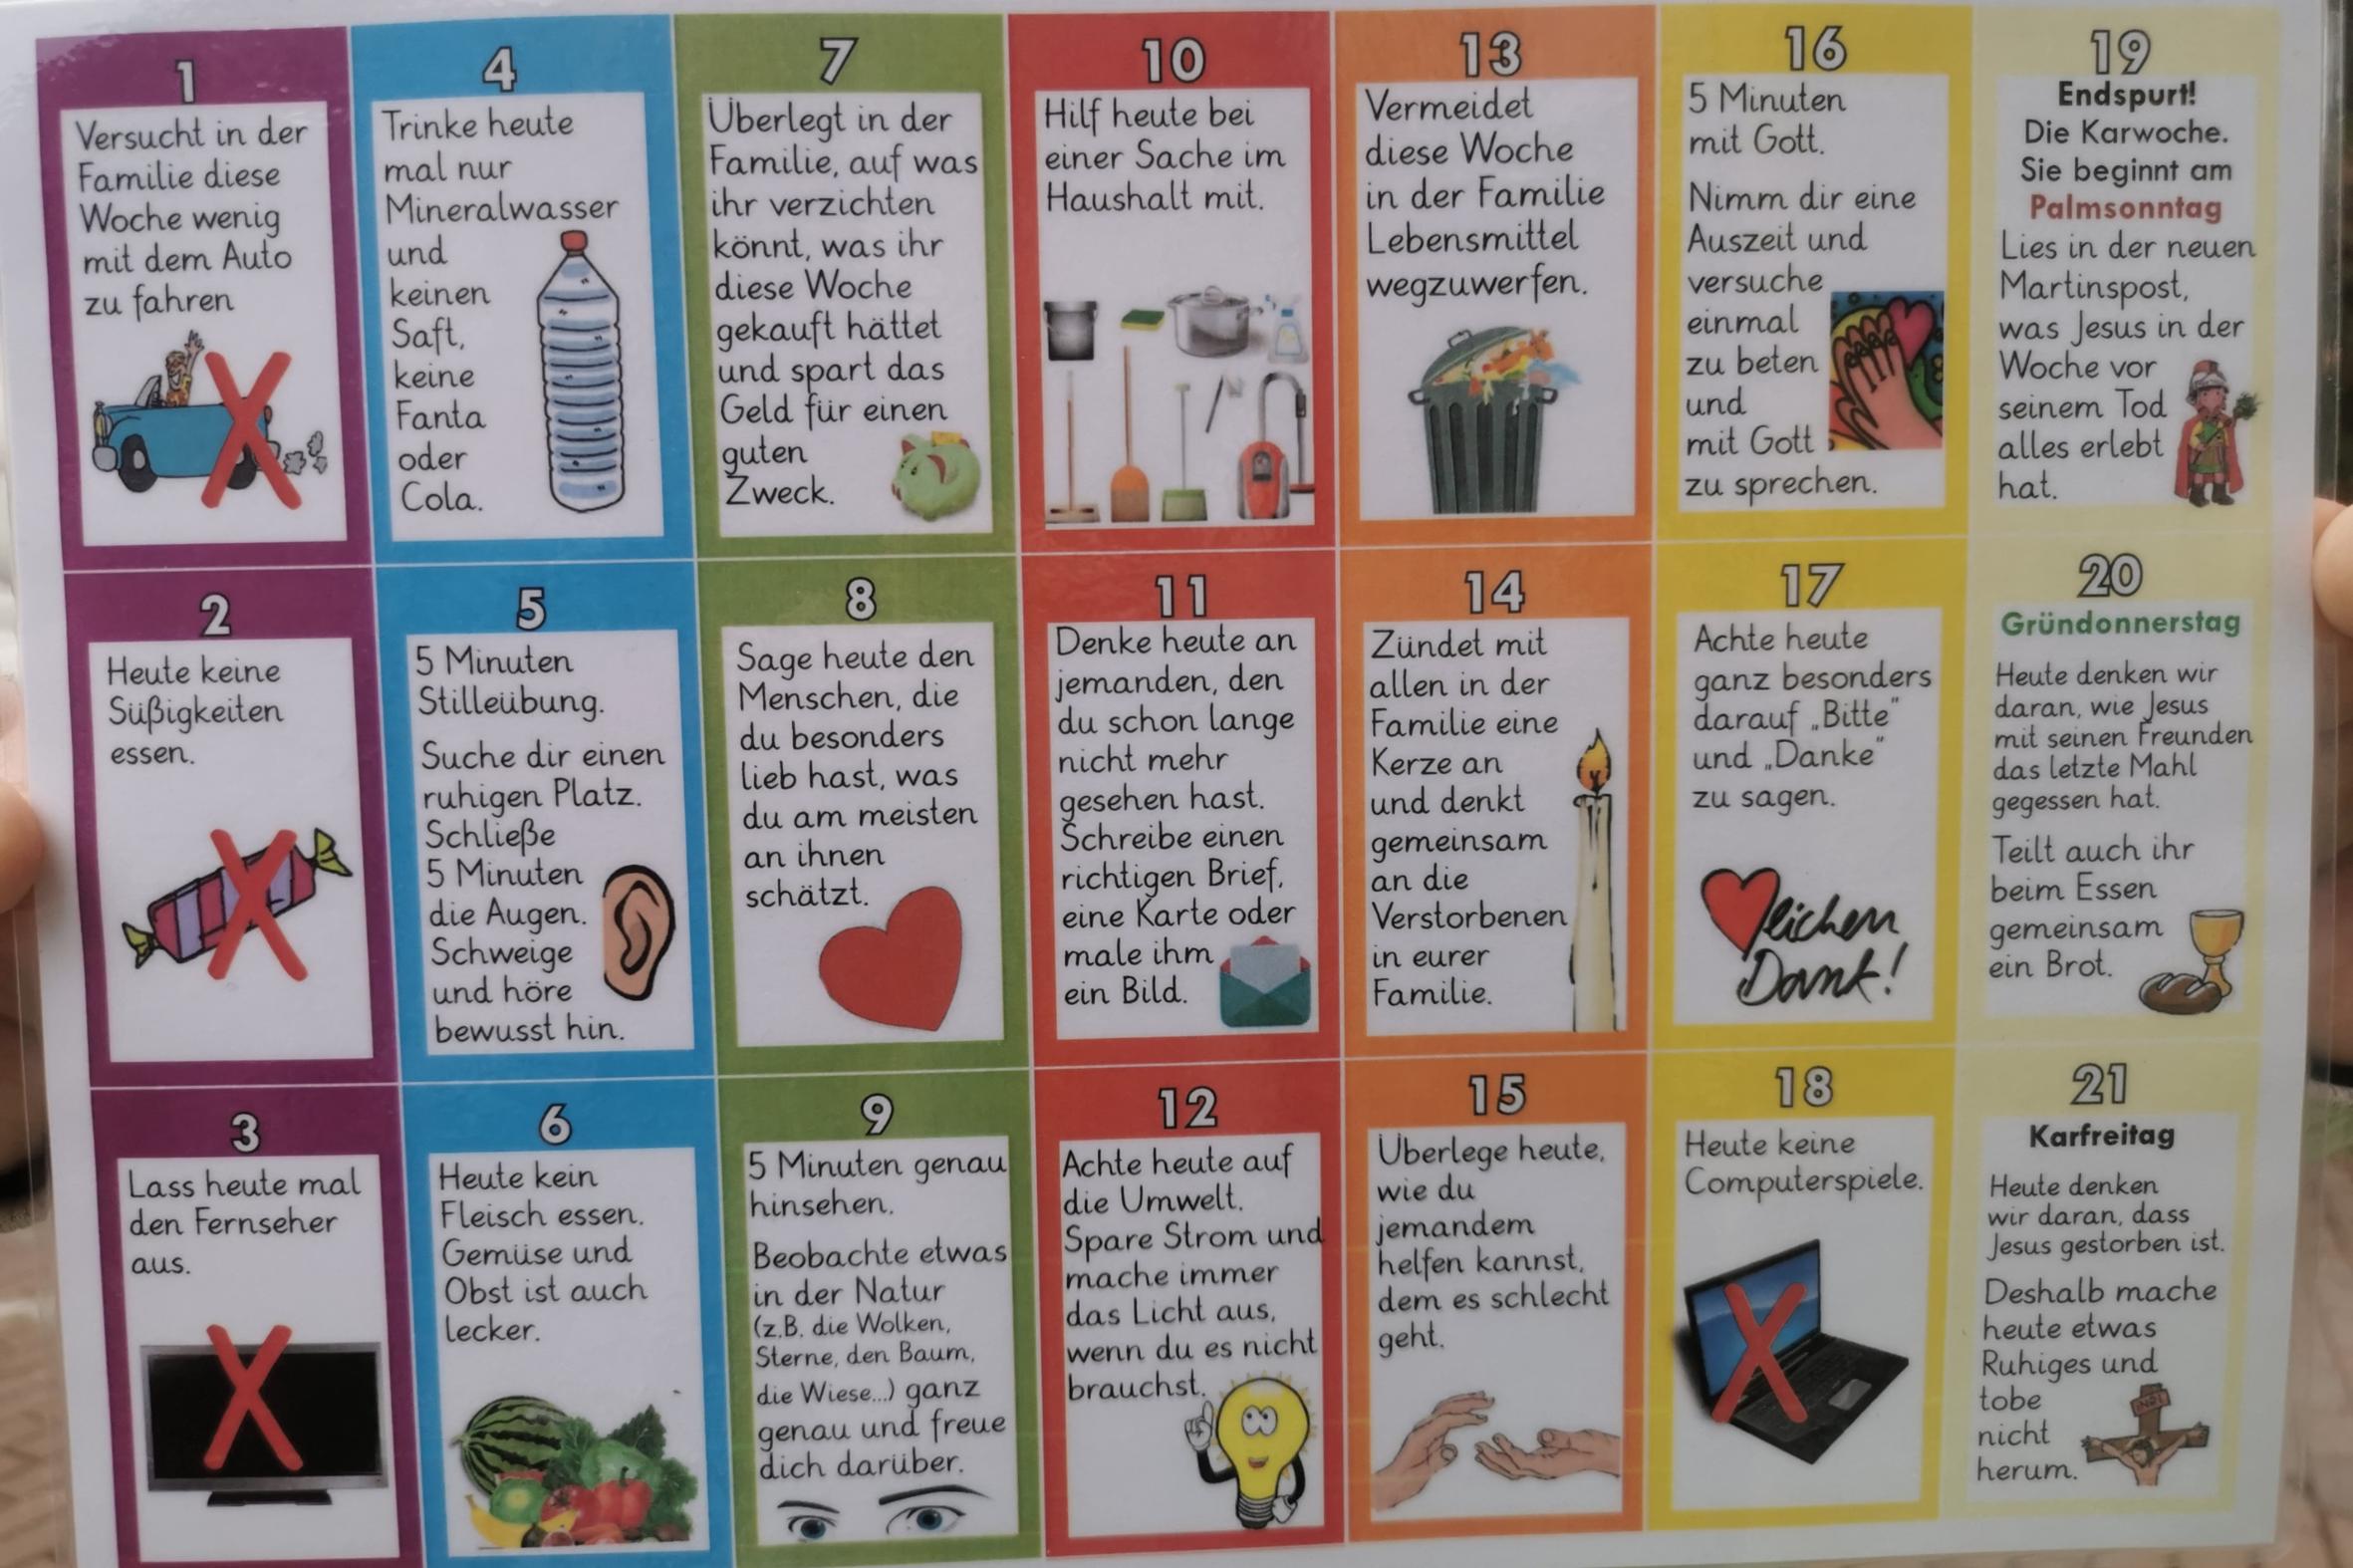 1
Versucht in der
Familie diese
Woche wenig
mit dem Auto
zu fahren
2
Heute keine
Süßigkeiten
essen.
3
Lass heute mal
den Fernseher
aus.
4
Trinke heute
mal nur
Mineralwasser
und
keinen
Saft,
keine
Fanta
oder
Cola.
5
5 Minuten
Stilleübung.
Suche dir einen
ruhigen Platz.
Schließe
5 Minuten
die Augen.
Schweige
und höre
bewusst hin.
6
Heute kein
Fleisch essen.
Gemüse und
Obst ist auch
lecker.
7
Überlegt in der
Familie, auf was
ihr verzichten
könnt, was ihr
diese Woche
gekauft hättet
und spart das
Geld für einen
guten
Zweck.
8
Sage heute den
Menschen, die
du besonders
lieb hast, was
du am meisten
an ihnen
schätzt.
9
5 Minuten genau
hinsehen.
Beobachte etwas
in der Natur
(z.B. die Wolken,
Sterne, den Baum,
die Wiese...) ganz
genau und freue
dich darüber.
10
Hilf heute bei
einer Sache im
Haushalt mit.
11
Denke heute an
jemanden, den
du schon lange
nicht mehr
gesehen hast.
Schreibe einen
richtigen Brief,
eine Karte oder
male ihm
ein Bild.
12
Achte heute auf
die Umwelt.
Spare Strom und
mache immer
das Licht aus,
wenn du es nicht
brauchst.
13
Vermeidet
diese Woche
in der Familie
Lebensmittel
wegzuwerfen.
14
Zündet mit
allen in der
Familie eine
Kerze an
und denkt
gemeinsam
an die
Verstorbenen
in eurer
Familie.
15
Überlege heute,
wie du
jemandem
helfen kannst,
dem es schlecht
geht.
16
5 Minuten
mit Gott.
Nimm dir eine
Auszeit und
versuche
einmal
zu beten
und
mit Gott
zu sprechen.
17
Achte heute
ganz besonders
darauf „Bitte"
und „Danke"
zu sagen.
lichen
Dank!
18
Heute keine
Computerspiele.
19
Endspurt!
Die Karwoche.
Sie beginnt am
Palmsonntag
Lies in der neuen
Martinspost,
was Jesus in der
Woche vor
seinem Tod
alles erlebt
hat.
20
Gründonnerstag
Heute denken wir
daran, wie Jesus
mit seinen Freunden
das letzte Mahl
gegessen hat.
Teilt auch ihr
beim Essen
gemeinsam
ein Brot.
21
Karfreitag
Heute denken
wir daran, dass
Jesus gestorben ist.
Deshalb mache
heute etwas
Ruhiges und
tobe
nicht
herum.